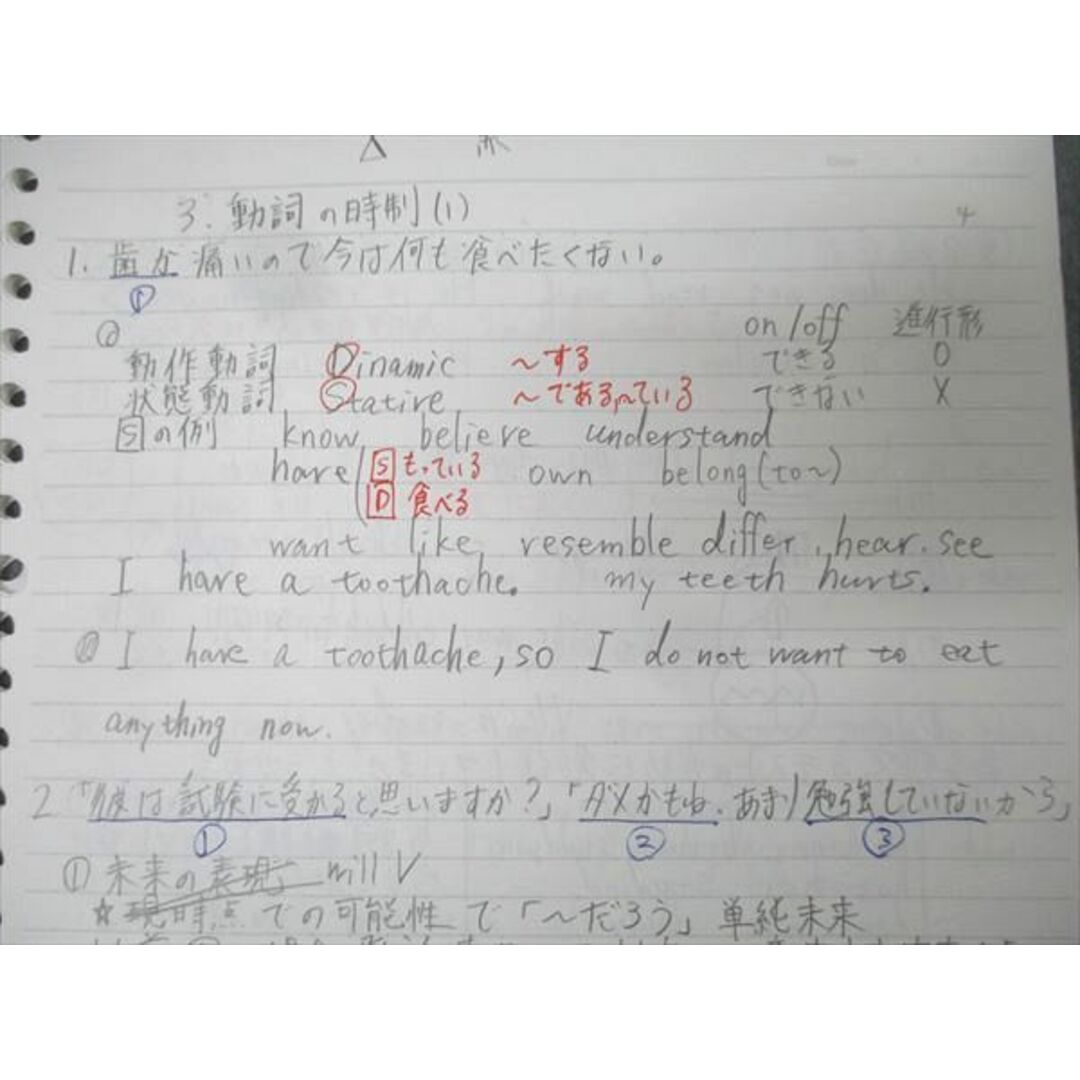 3. 動詞の時制(1)
4
1. 歯が痛いので今は何も食べたくない。
①
① on/off 進行形
動作動詞 Dinamic ～する できる O
状態動詞 Stative ～である,～ている できない X
Sの例 know believe understand
have S もっている own belong(to～)
D 食べる
want like resemble differ, hear. see
I have a toothache. my teeth hurts.
I have a toothache, so I do not want to eat
anything now.
2 「彼は試験に受かると思いますか?」「ダメかもね. あまり勉強していないから」
① ② ③
① 未来の表現 will V
☆現時点での可能性で「～だろう」単純未来